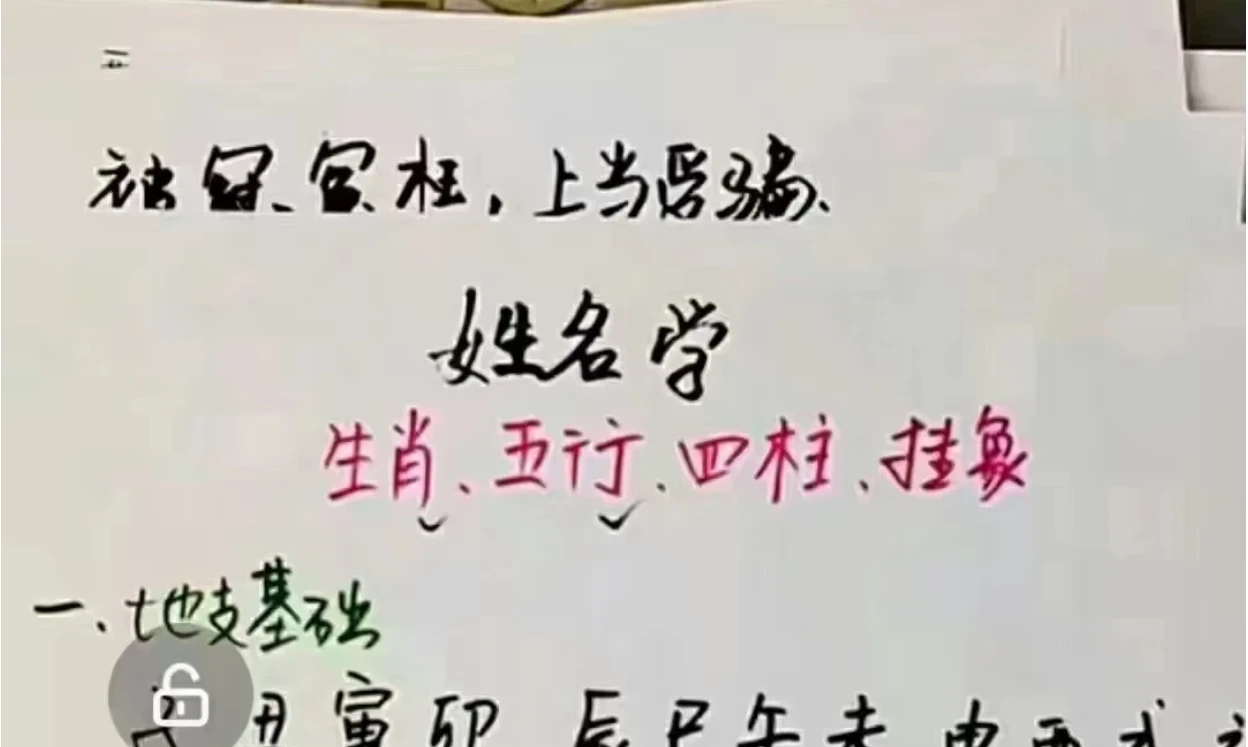 被冤、冤枉，上当受骗、
姓名学
生肖、五行、四柱、挂象
一、地支基础
丑寅卯辰巳午未申酉戌